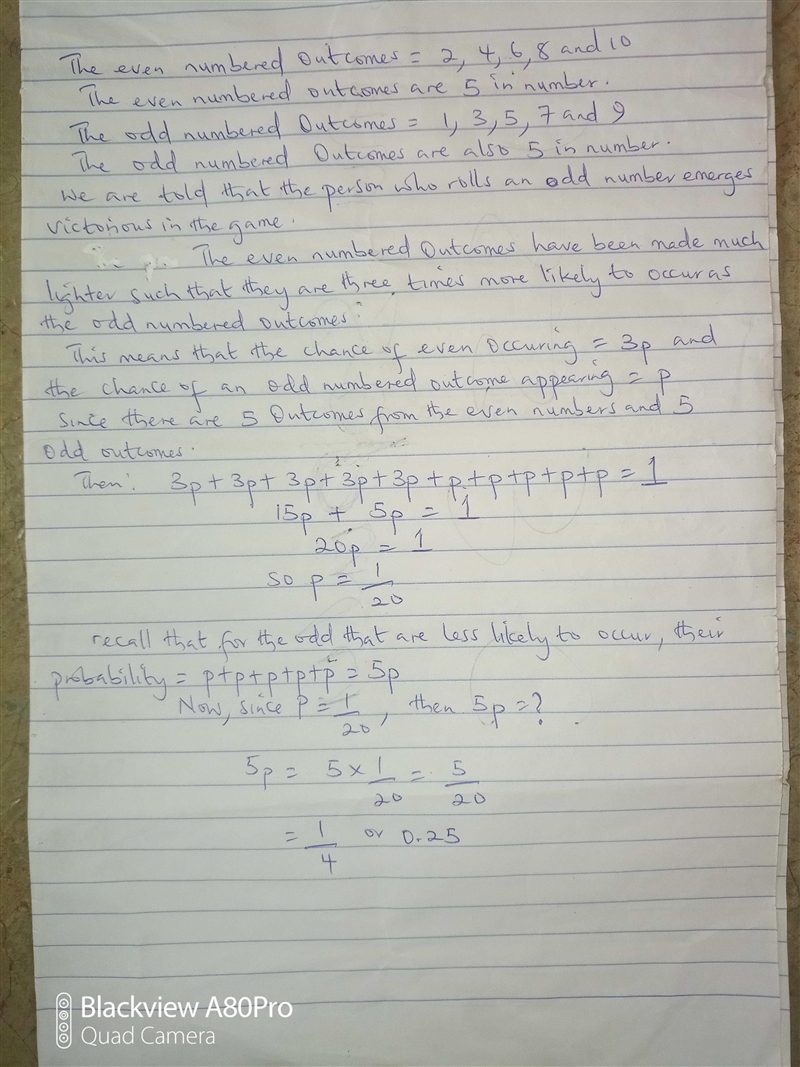 The even numbered Outcomes = 2, 4, 6, 8 and 10
The even numbered outcomes are 5 in number.
The odd numbered Outcomes = 1, 3, 5, 7 and 9
The odd numbered Outcomes are also 5 in number.
We are told that the person who rolls an odd number emerges
victorious in the game.
The even numbered Outcomes have been made much
lighter such that they are three times more likely to occur as
the odd numbered outcomes.
This means that the chance of even occuring = 3p and
the chance of an odd numbered outcome appearing = p
Since there are 5 Outcomes from the even numbers and 5
Odd outcomes.
Then: 3p + 3p + 3p + 3p + 3p + p + p + p + p + p = 1
15p + 5p = 1
20p = 1
so p = 1/20
recall that for the odd that are less likely to occur, their
probability = p+p+p+p+p = 5p
Now, since P = 1/20, then 5p = ?
5p = 5 × 1/20 = 5/20
= 1/4 or 0.25
Blackview A80Pro
Quad Camera